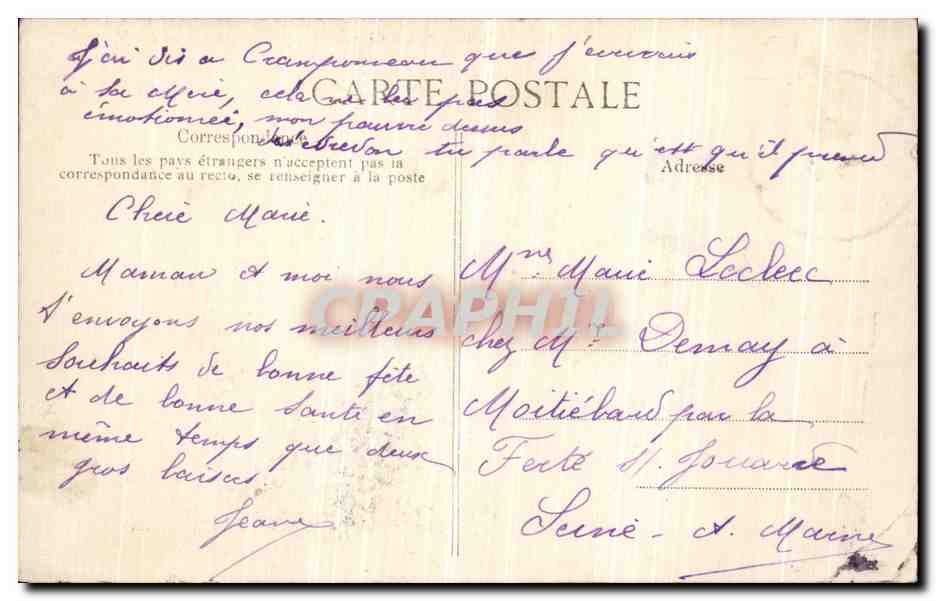 J'ai dis a Cramponneau que j'écrirais
à sa Mère, cela ne les pas
émotionnée, mon pauvre dessus
d'edredon tu parle qu'est qu'il prend
CARTE POSTALE
Correspondance
Tous les pays étrangers n'acceptent pas la
correspondance au recto, se renseigner à la poste
Adresse
Chère Marie.
Maman et moi nous
t'envoyons nos meilleurs
souhaits de bonne fête
et de bonne santé en
même temps que deux
gros baisers
Jeanne
Mme Marie Leclerc
chez Mr Demay à
Moitiébard par la
Ferté s/ Jouarre
Seine - et Marne
CPAPHIL